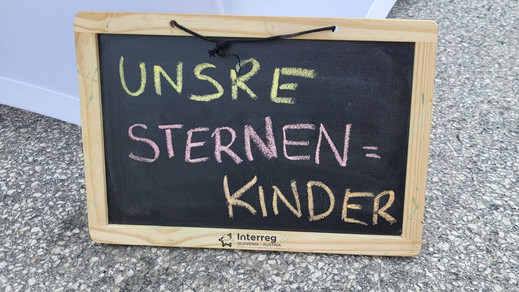 UNSRE
STERNEN=
KINDER
Interreg
SLOVENIA - AUSTRIA